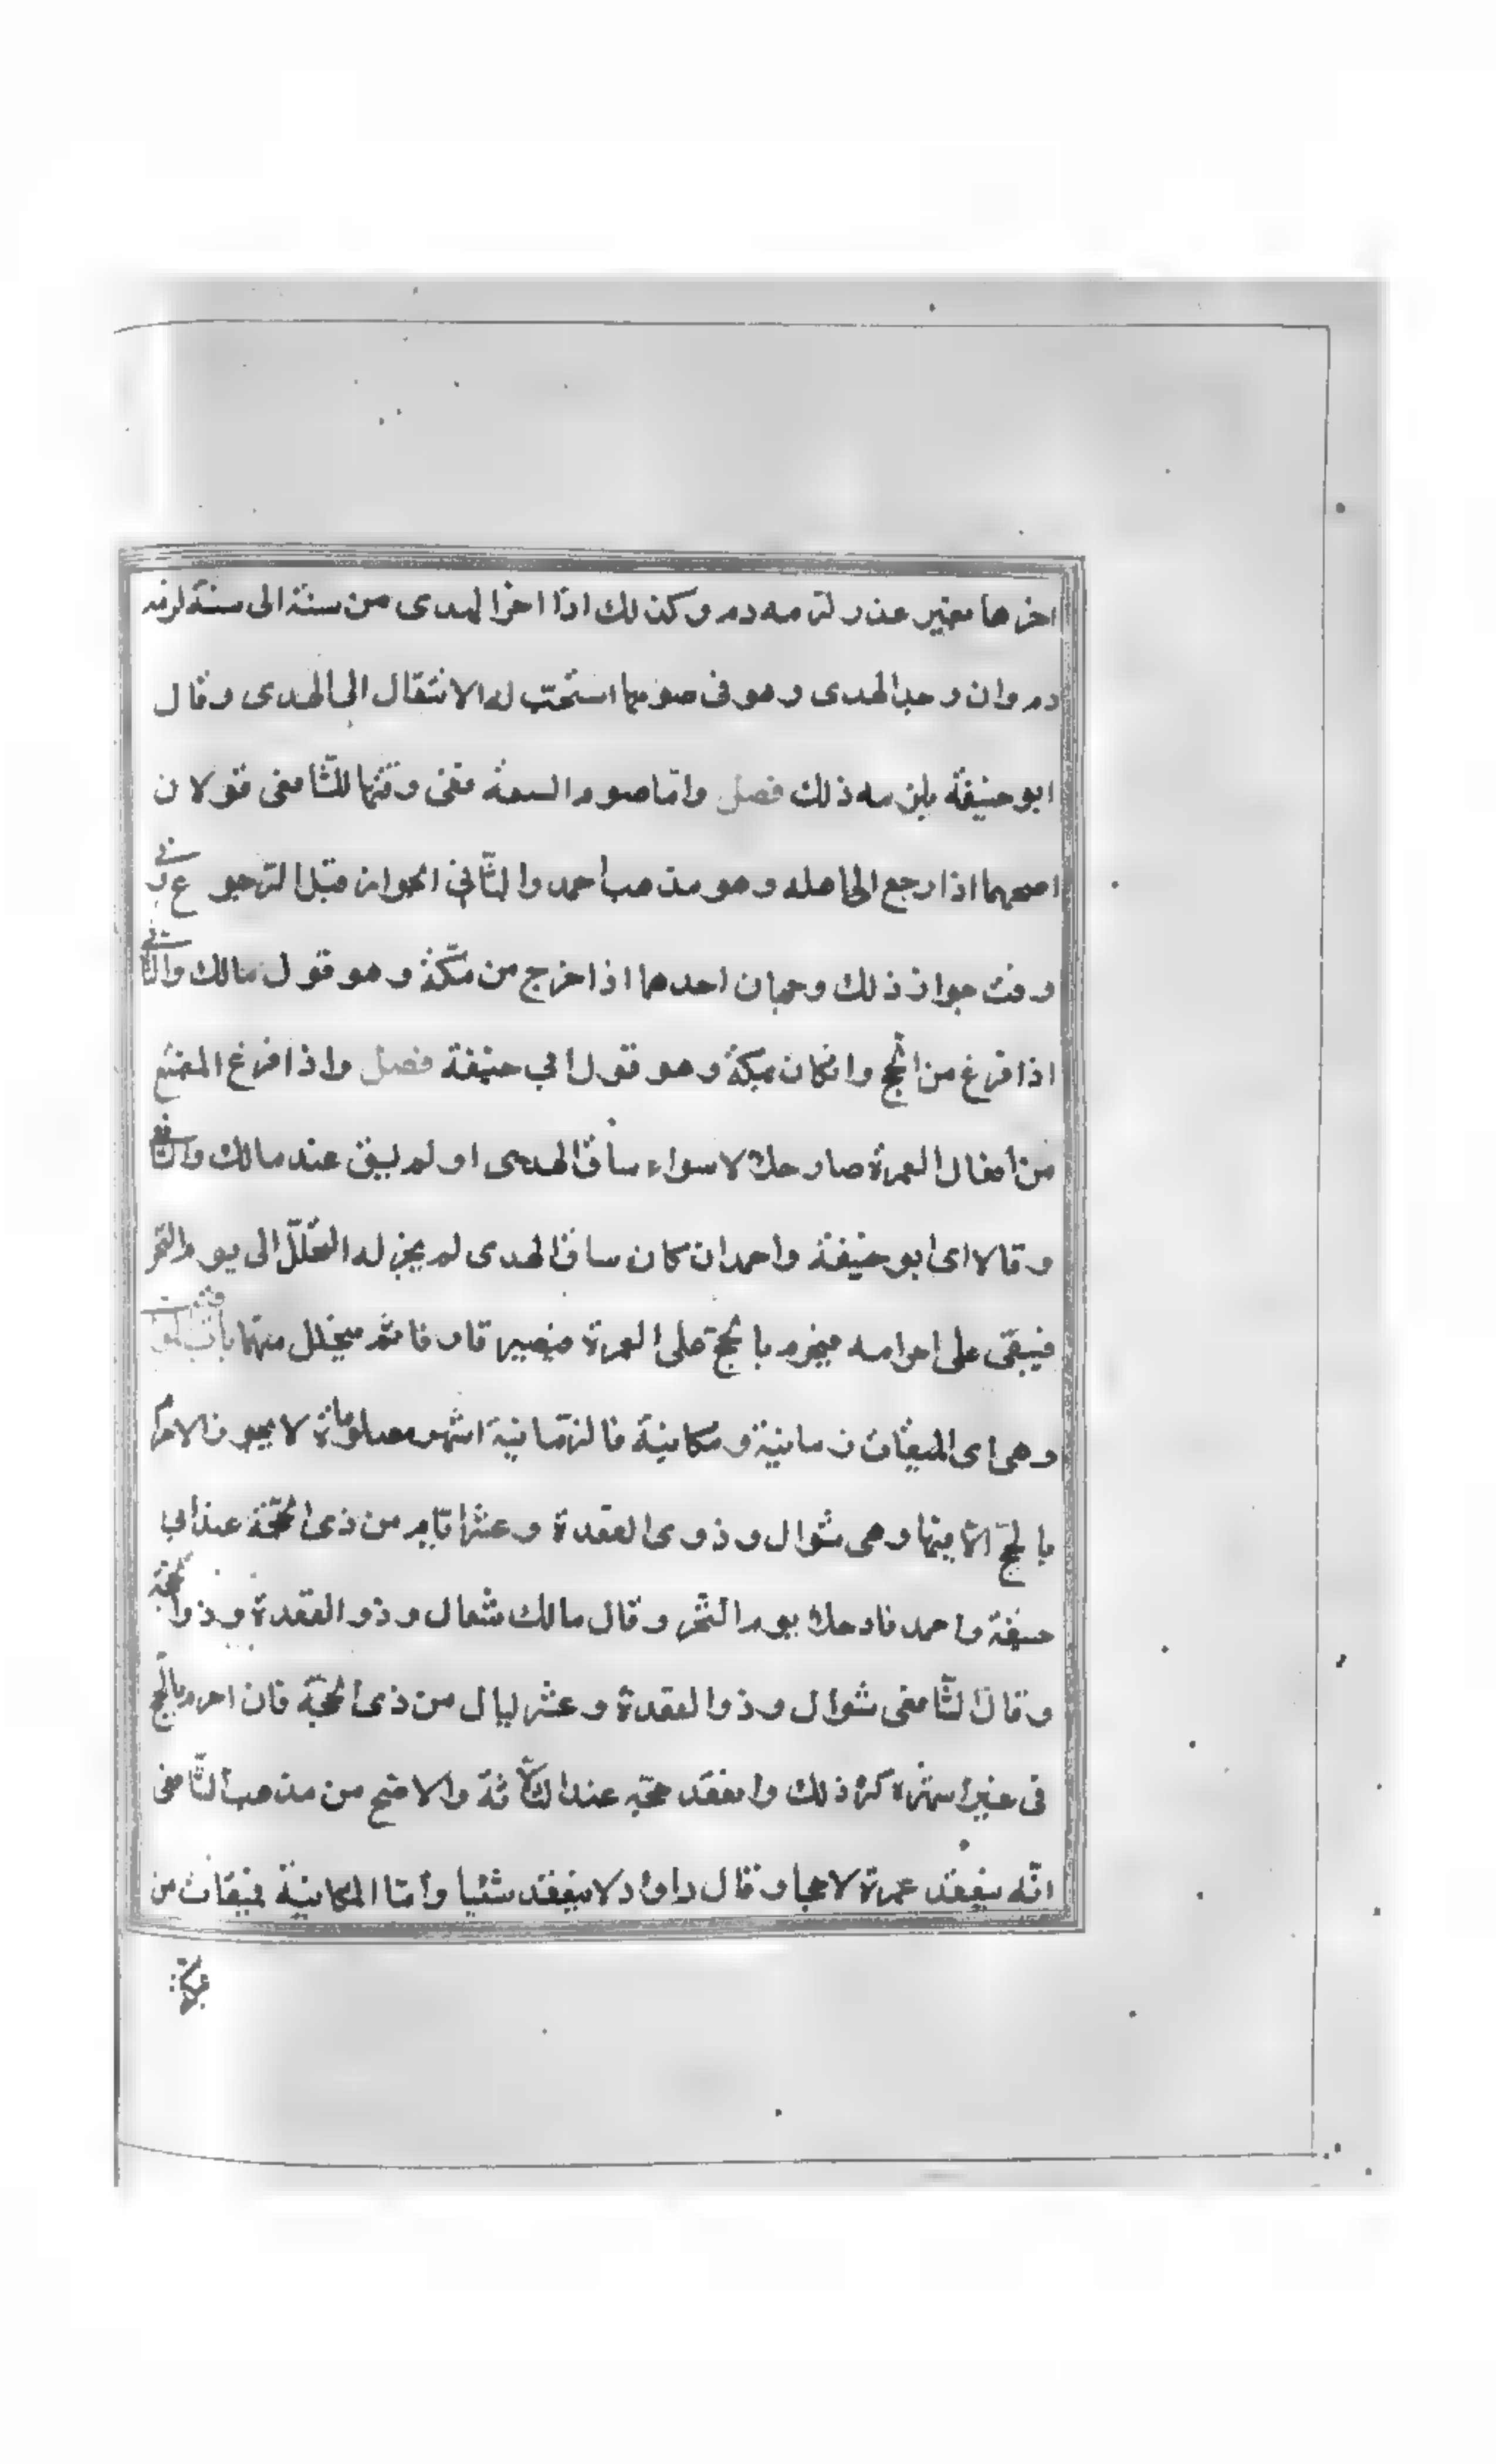 اخرها بغير عذر لزمه دم وكذلك اذا اخر الهدى من سنة الى سنة لزمه
دم وان وجد الهدى وهو فى صومها استحب له الانتقال الى الهدى وقال
ابو حنيفة يلزمه ذلك فصل واما صوم السبعة ففى وقتها للشافعى قولان
اصحهما اذا رجع الى اهله وهو مذهب احمد والثانى الجواز قبل الرجوع فى
وقت جواز ذلك وجهان احدهما اذا خرج من مكة وهو قول مالك والثانى
اذا فرغ من الحج وان كان بمكة وهو قول ابي حنيفة فصل واذا فرغ المتمتع
من افعال العمرة صار حلالا سواء ساق الهدى او لم يسق عند مالك والشافعى
وقالا اى ابو حنيفة واحمد ان كان ساق الهدى لم يجز له التحلل الى يوم النحر
فيبقى على احرامه فيحرم بالحج على العمرة فيصير قارنا ثم يتحلل منهما باب المواقيت
وهى اى الميقات زمانية ومكانية فالزمانية اشهر معلومات لا يجوز الاحرام
بالحج الا فيها وهى شوال وذوى القعدة وعشر ايام من ذى الحجة عند ابي
حنيفة واحمد فادخلا يوم النحر وقال مالك شوال وذو القعدة وذو الحجة
وقال الشافعى شوال وذو القعدة وعشر ليال من ذى الحجة فان احرم بالحج
فى غير اشهره كره ذلك وانعقد حجه عند الثلاثة والاصح من مذهب الشافعى
انه ينعقد عمرة لا حجا وقال داود لا ينعقد شئيا واما المكانية فميقات من
بمكة